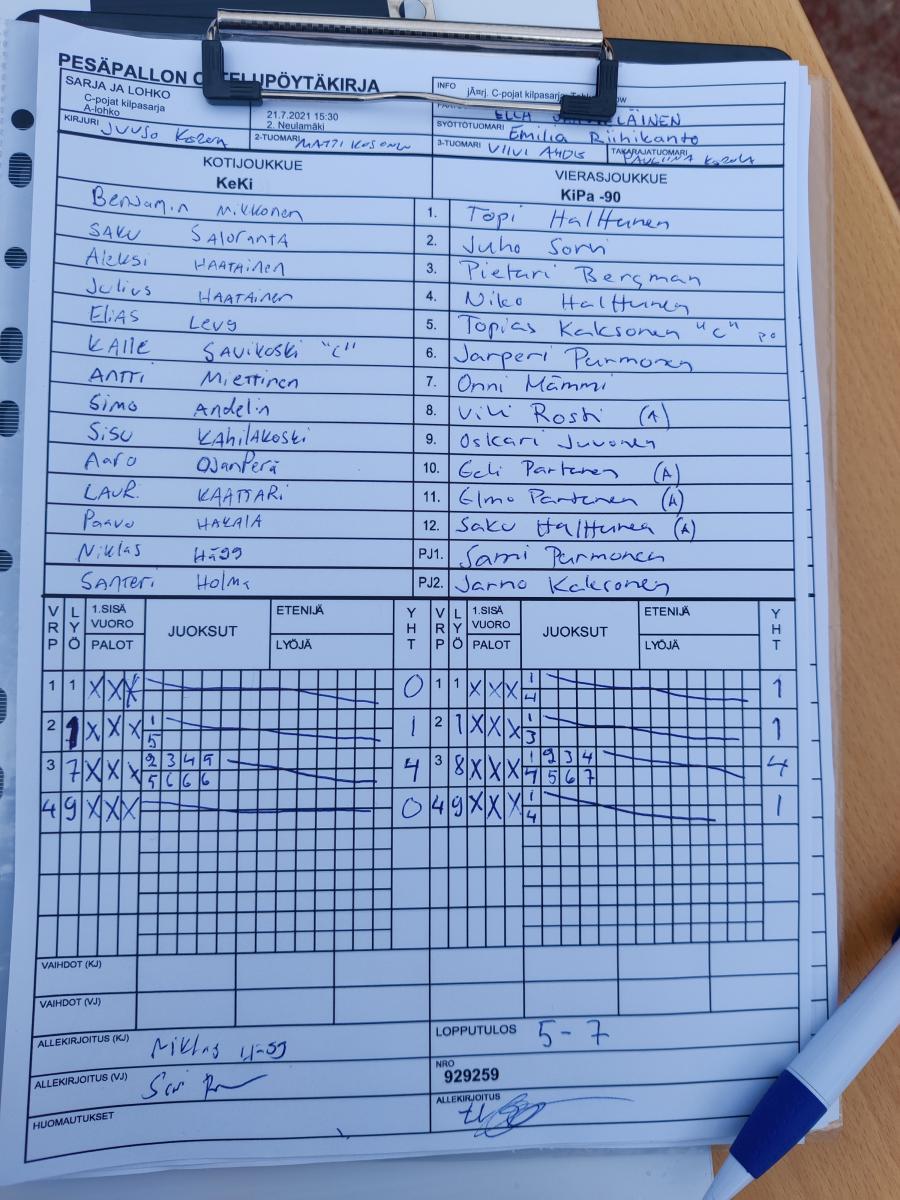 PESÄPALLON OTTELUPÖYTÄKIRJA
SARJA JA LOHKO
C-pojat kilpasarja
A-lohko
21.7.2021 15:30
2. Neulamäki
INFO
jÃ¤rj. C-pojat kilpasarja
KIRJURI Juuso Korola
2-TUOMARI MATTI KOSONEN
ELLA
SYÖTTÖTUOMARI Emilia Riihikanto
3-TUOMARI VIIVI AHDIS
TAKARAJATUOMARI PAULIINA Korola
KOTIJOUKKUE
KeKi
VIERASJOUKKUE
KiPa -90
Benjamin Mikkonen 1. Topi Halttunen
SAKU SALORANTA 2. Juho Sorvi
Aleksi HAATAINEN 3. Pietari Bergman
Julius HAATAINEN 4. Niko Halttunen
ELIAS Levy 5. Topias Kaksonen "C" PO
KALLE SAVIKOSKI "C" 6. Jarperi Purmonen
ANTTI Miettinen 7. Onni Mämmi
Simo Andelin 8. Vili Rosti (A)
SISU KAHILAKOSKI 9. Oskari Juvonen
Aaro OJANPERÄ 10. Eeli Partanen (A)
LAURI KAATTARI 11. Elmo Partanen (A)
Paavo HAKALA 12. Saku Halttunen (A)
Niklas Hägg PJ1. Sami Purmonen
SANTERI Holma PJ2. Jarno Kaksonen
VRP LYÖ 1.SISÄ VUORO PALOT JUOKSUT ETENIJÄ LYÖJÄ YHT VRP LYÖ 1.SISÄ VUORO PALOT JUOKSUT ETENIJÄ LYÖJÄ YHT
1 1 X X X 0 1 1 X X X 1 1
4
2 1 X X X 1 1 2 1 X X X 1 1
5 3
3 7 X X X 2 3 4 5 4 3 8 X X X 1 2 3 4 4
5 6 6 6 4 5 6 7
4 9 X X X 0 4 9 X X X 1 1
4
VAIHDOT (KJ)
VAIHDOT (VJ)
ALLEKIRJOITUS (KJ) Niklas Hägg
LOPPUTULOS 5-7
ALLEKIRJOITUS (VJ)
NRO
929259
HUOMAUTUKSET
ALLEKIRJOITUS